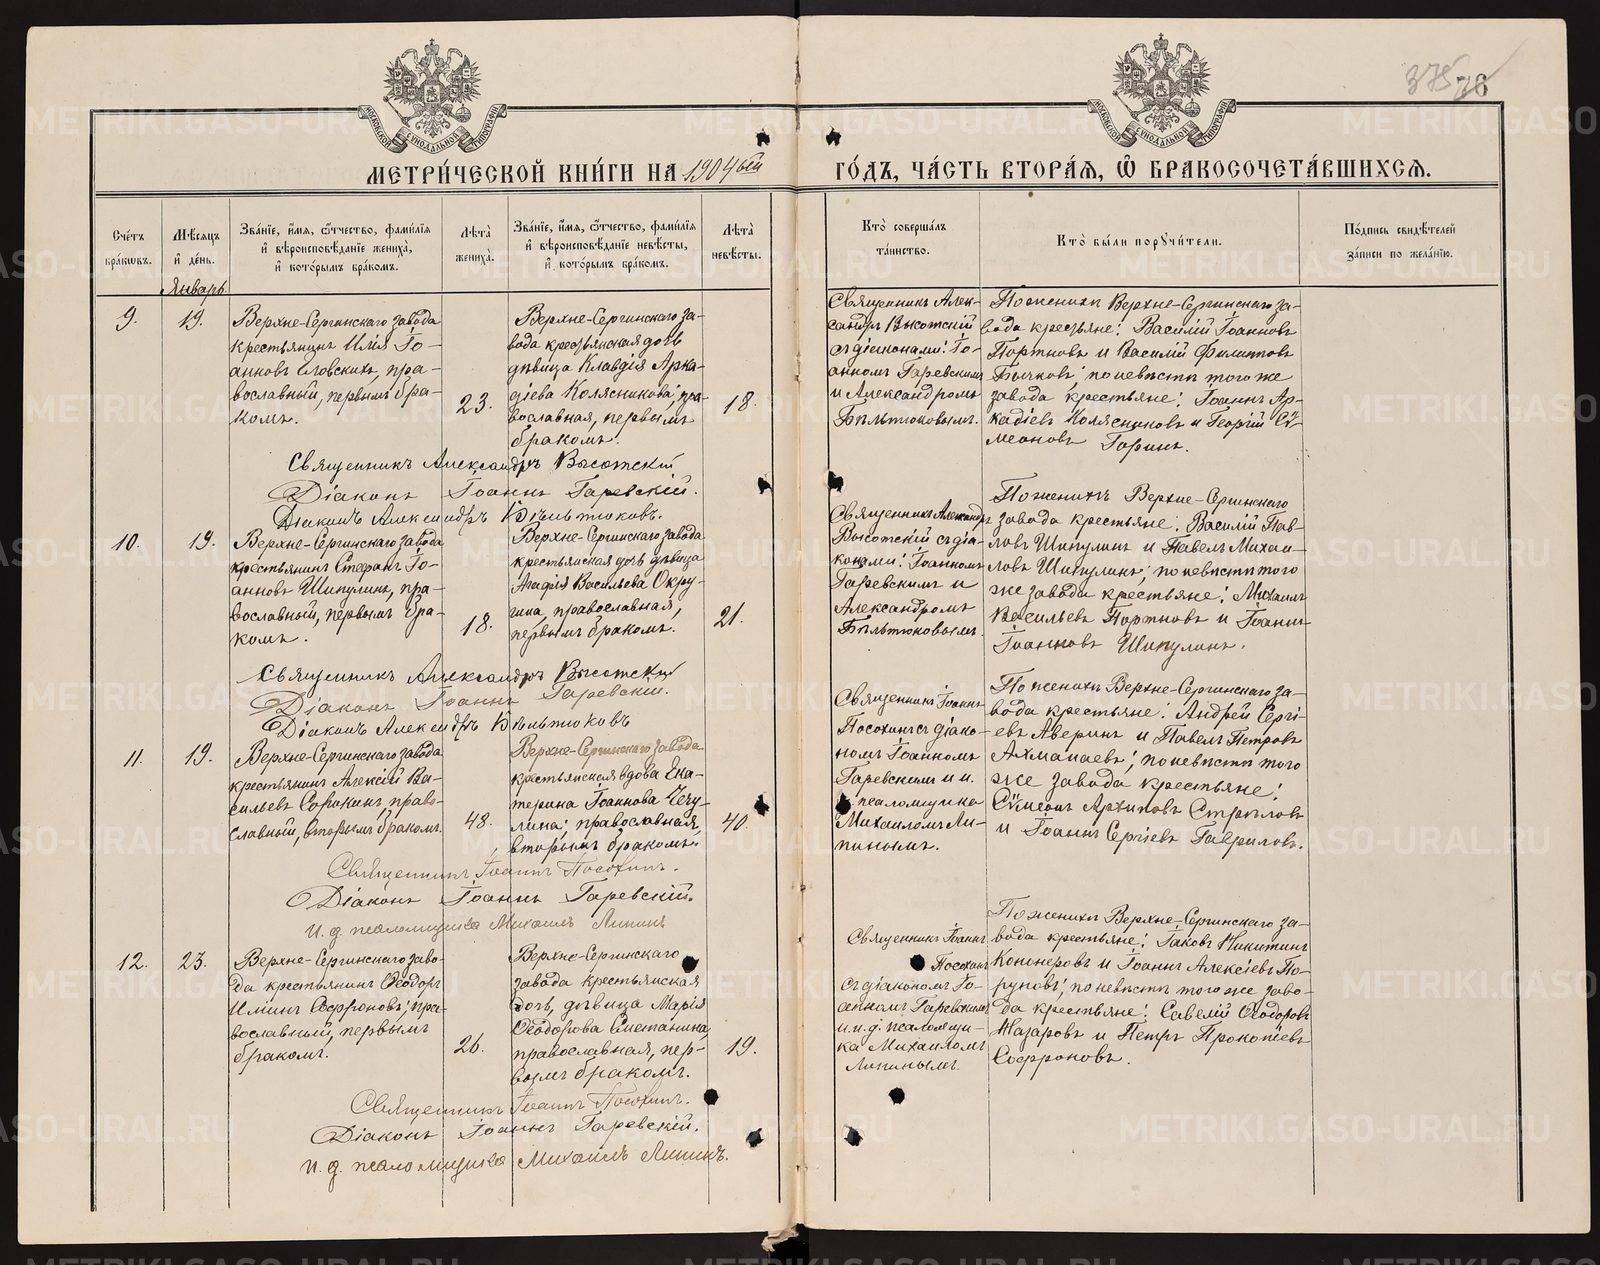 375 76
МЕТРИ́ЧЕСКОЙ КНИ́ГИ НА 1904ый ГО́ДЪ, ЧА́СТЬ ВТОРА́Я, Ѽ БРАКОСОЧЕТА́ВШИХСЯ.
Сче́тъ бра́кωвъ.
Мѣ́сяцъ и҆ де́нь.
Зва́нїе, и҆́мя, ѻ҆́тчество, фами́лїя и҆ вѣроисповѣ́данїе жениха̀, и҆ кото́рымъ бра́комъ.
Лѣ́та жениха̀.
Зва́нїе, и҆́мя, ѻ҆́тчество, фами́лїя и҆ вѣроисповѣ́данїе невѣ́сты, и҆ кото́рымъ бра́комъ.
Лѣ́та невѣ́сты.
Кто̀ соверша́лъ та́инство.
Кто̀ бы́ли поручи́тели.
По́дпись свидѣ́телей за́писи по жела́нїю.
Январь.
9.
19.
Верхне-Сергинскаго завода
крестьянинъ Илія Іо-
анновъ Словскихъ, пра-
вославный, первымъ бра-
комъ.
23.
Верхне-Сергинскаго за-
вода крестьянская дочь
дѣвица Клавдія Арка-
діева Колясникова, пра-
вославная, первымъ
бракомъ.
18.
Священникъ Алек-
сандръ Высотскій
съ діаконами: Іо-
анномъ Гаревскимъ
и Александромъ
Бѣльтюковымъ.
По женихѣ Верхне-Сергинскаго за-
вода крестьяне: Василій Іоанновъ
Портновъ и Василій Филиповъ
Бычковъ; по невѣстѣ того же
завода крестьяне: Іоаннъ Ар-
кадіевъ Колясниковъ и Георгій Сѵ-
меоновъ Горинъ.
Священникъ Александръ Высотскій
Діаконъ Іоаннъ Гаревскій.
Діаконъ Александръ Бѣльтюковъ.
10.
19.
Верхне-Сергинскаго завода
крестьянинъ Стефанъ Іо-
анновъ Шипулинъ, пра-
вославный, первымъ бра-
комъ.
18.
Верхне-Сергинскаго завода
крестьянская дочь дѣвица
Агафія Васильева Окру-
гина, православная,
первымъ бракомъ.
21.
Священникъ Александръ
Высотскій съ діа-
конами: Іоанномъ
Гаревскимъ и
Александромъ
Бѣльтюковымъ.
По женихѣ Верхне-Сергинскаго
завода крестьяне: Василій Пав-
ловъ Шипулинъ и Павелъ Михаи-
ловъ Шипулинъ; по невѣстѣ того
же завода крестьяне: Михаилъ
Васильевъ Портновъ и Іоаннъ
Іоанновъ Шипулинъ.
Священникъ Александръ Высотскій
Діаконъ Іоаннъ Гаревскій.
Діаконъ Александръ Бѣльтюковъ
11.
19.
Верхне-Сергинскаго завода
крестьянинъ Алексій Ва-
сильевъ Сорокинъ, право-
славный, вторымъ бракомъ.
48.
Верхне-Сергинскаго завода
крестьянская вдова Ека-
терина Іоаннова Чечу-
лина; православная,
вторымъ бракомъ.
40.
Священникъ Іоаннъ
Посохинъ съ діако-
номъ Іоанномъ
Гаревскимъ и и.
д. псаломщика
Михаиломъ Ли-
пинымъ.
По женихѣ Верхне-Сергинскаго за-
вода крестьяне: Андрей Сергі-
евъ Аверинъ и Павелъ Петровъ
Ахманаевъ; по невѣстѣ того
же завода крестьяне:
Сѵмеонъ Архиповъ Стрѣловъ
и Іоаннъ Сергіевъ Гавриловъ.
Священникъ Іоаннъ Посохинъ.
Діаконъ Іоаннъ Гаревскій.
И. д. псаломщика Михаилъ Липинъ
12.
23.
Верхне-Сергинскаго заво-
да крестьянинъ Ѳеодоръ
Софроновъ; пра-
вославный, первымъ
бракомъ.
26.
Верхне-Сергинскаго
завода крестьянская
дочь, дѣвица Марія
Ѳеодорова Сметанина,
православная, пер-
вымъ бракомъ.
19.
Священникъ Іоаннъ
Посохинъ
съ діакономъ Іо-
анномъ Гаревскимъ
и и. д. псаломщи-
ка Михаиломъ
Липинымъ.
По женихѣ Верхне-Сергинскаго за-
вода крестьяне: Іаковъ Никитинъ
Кононеровъ и Іоаннъ Алексіевъ По-
руновъ; по невѣстѣ того же заво-
да крестьяне: Савелій Ѳеодоровъ
Назаровъ и Петръ Прокопіевъ
Софроновъ.
Священникъ Іоаннъ Посохинъ.
Діаконъ Іоаннъ Гаревскій.
И. д. псаломщика Михаилъ Липинъ.
METRIKI.GASO-URAL.RU